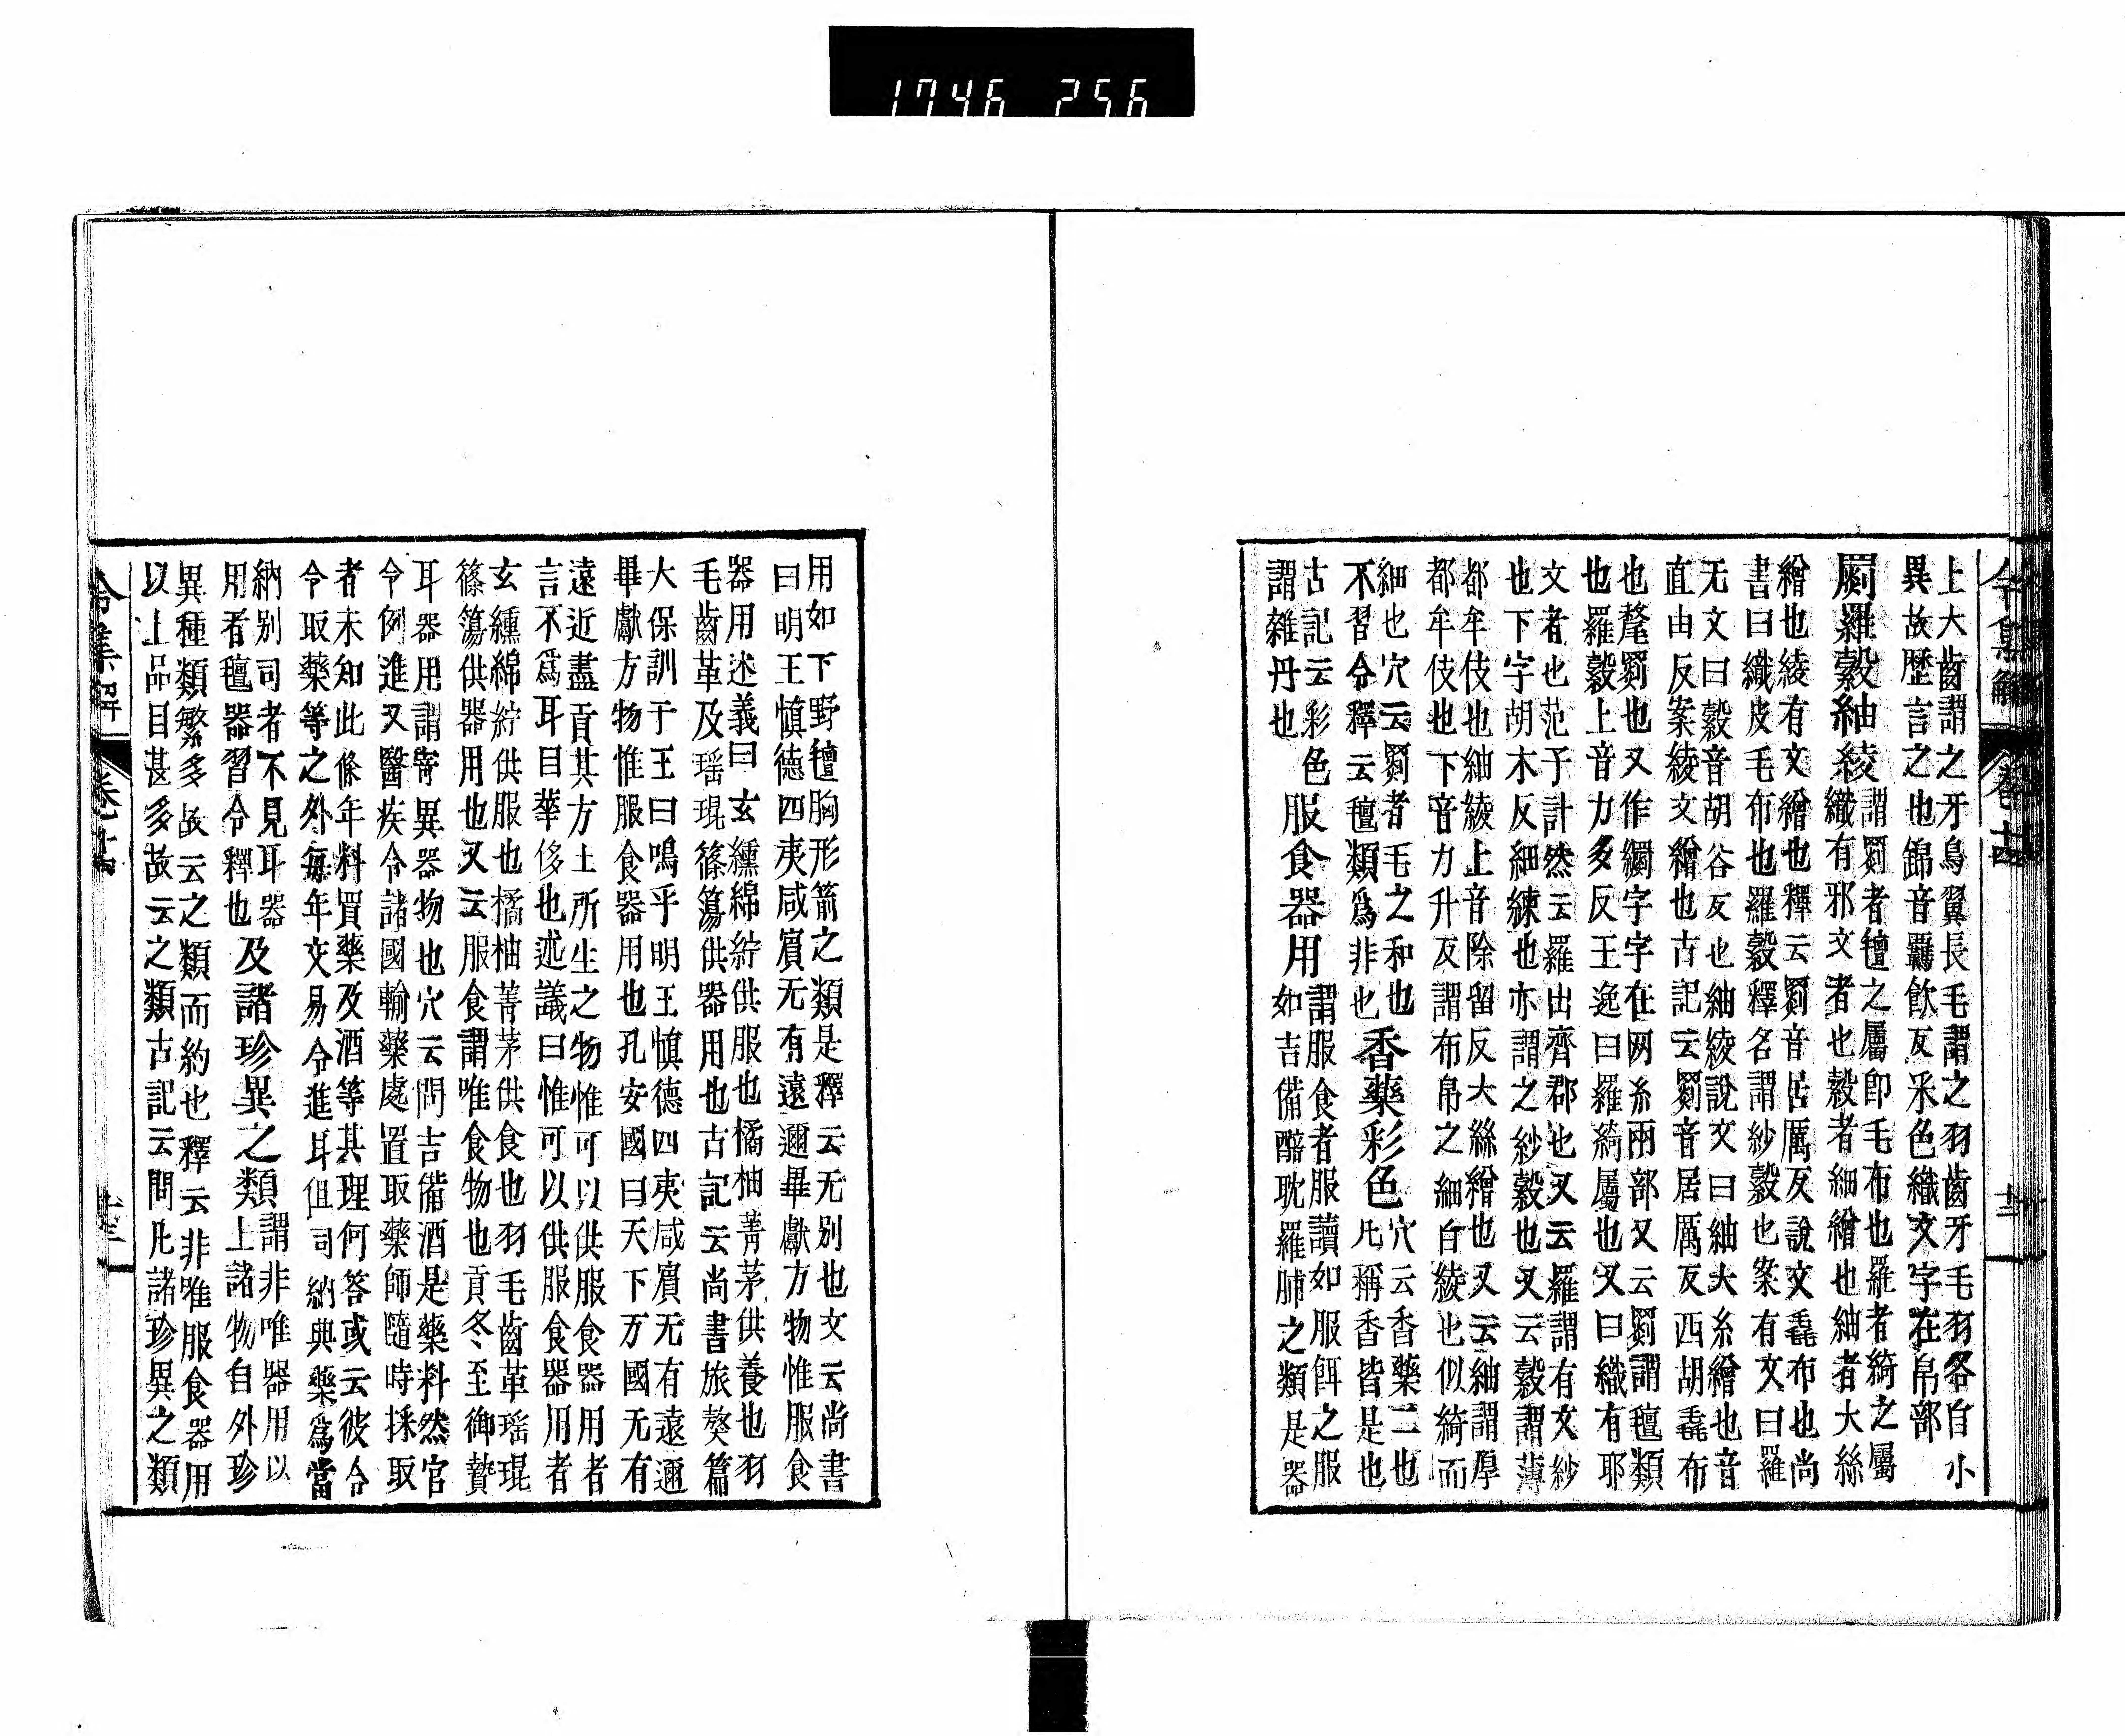 1746 256
令集解 卷十四 十三
上大齒謂之牙鳥翼長毛謂之羽齒牙毛羽各自小
異故歷言之也錦音羈飮反采色織文字在帛部
罽羅縠紬綾
謂罽者氊之屬卽毛布也羅者綺之屬
織有邪文者也縠者細繒也紬者大絲
繒也綾有文繒也釋云罽音居厲反說文毳布也尚
書曰織皮毛布也羅縠釋名謂紗縠也案有文曰羅
无文曰縠音胡谷反也紬綾說文曰紬大糸繒也音
直由反案綾文繒也古記云罽音居厲反西胡毳布
也氂罽也又作繝字字在网糸兩部又云罽謂氊類
也羅縠上音力多反王逸曰羅綺屬也又曰織有耶
文者也范子計然云羅出齊郡也又云羅謂有文紗
也下字胡木反細練也亦謂之紗縠也又云縠謂薄
都牟伎也紬綾上音除留反大絲繒也又云紬謂厚
都牟伎也下音力升反謂布帛之細白綾也似綺而
細也穴云罽者毛之和也
不習令釋云氊類爲非也
香藥彩色
穴云香藥二也
凡稱香皆是也
古記云彩色
謂雜丹也
服食器用
謂服食者服讀如服餌之服
如吉備醅耽羅脯之類是器
用如下野氊胸形箭之類是釋云无别也文云尚書
曰明王愼德四夷咸賔无有遠邇畢獻方物惟服食
器用述義曰玄纁綿紵供服也橘柚菁茅供養也羽
毛齒革及瑶琨篠簜供器用也古記云尚書旅獒篇
大保訓于王曰鳴乎明王愼德四夷咸賔无有遠邇
畢獻方物惟服食器用也孔安國曰天下万國无有
遠近盡貢其方土所生之物惟可以供服食器用者
言不爲耳目華侈也述議曰惟可以供服食器用者
玄纁綿紵供服也橘柚菁茅供食也羽毛齒革瑶琨
篠簜供器用也又云服食謂唯食物也貢冬至御贄
耳器用謂寄異器物也穴云問吉備酒是藥料然官
令例進又醫疾令諸國輸藥處置取藥師隨時採取
者未知此條年料買藥及酒等其理何答或云彼令
令取藥等之外每年交易令進耳但司納典藥爲當
納别司者不見耳器
用者氊器習令釋也
及諸珍異之類
謂非唯器用以
上諸物自外珍
異種類繁多故云之類而約也釋云非唯服食器用
以上品目甚多故云之類古記云問凡諸珍異之類
令集解 卷十四 十三